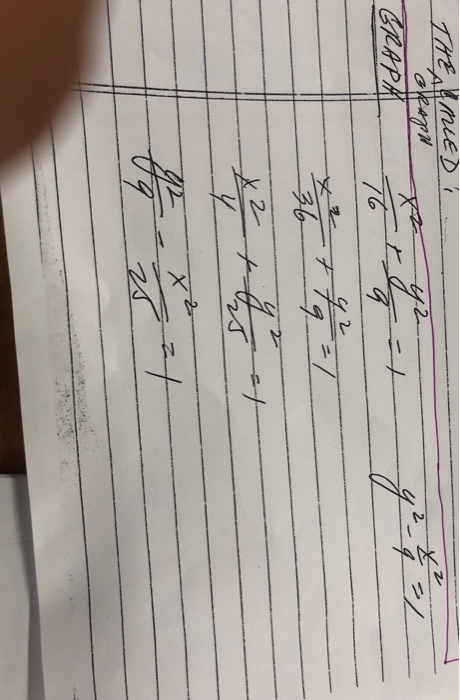 THE
GRAPH x²/16 + y²/9 = 1 y² - x²/9 = 1
x²/36 + y²/9 = 1
x²/4 + y²/25 = 1
y²/9 - x²/25 = 1